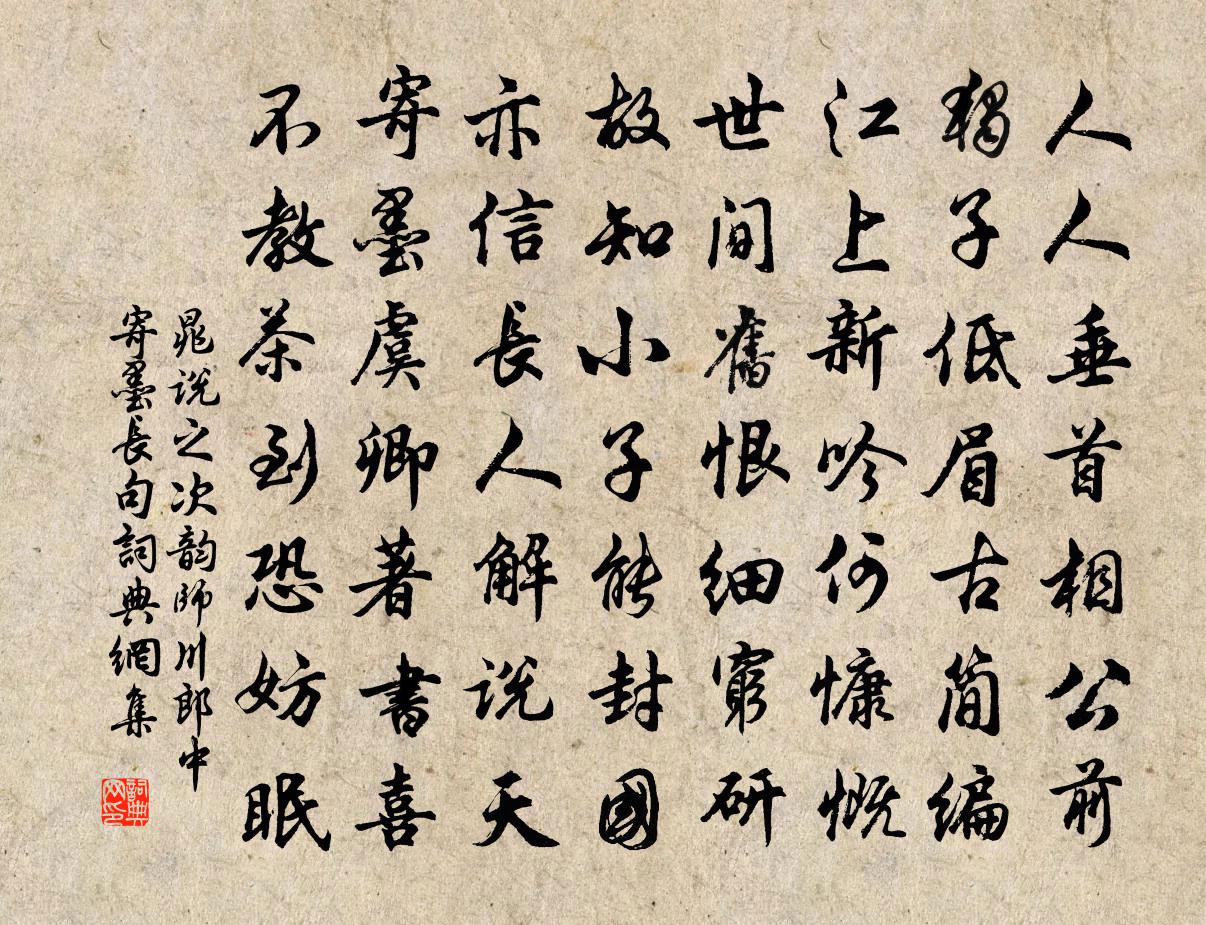 人人垂首相公前
獨子低眉古簡編
江上新吟何慷慨
世間舊恨細窮研
故知小子能封國
亦信長人解說天
寄墨虞卿著書喜
不教茶到恐妨眠
晁說之次韵師川郎中
寄墨長句詞典網集
詞典
网印